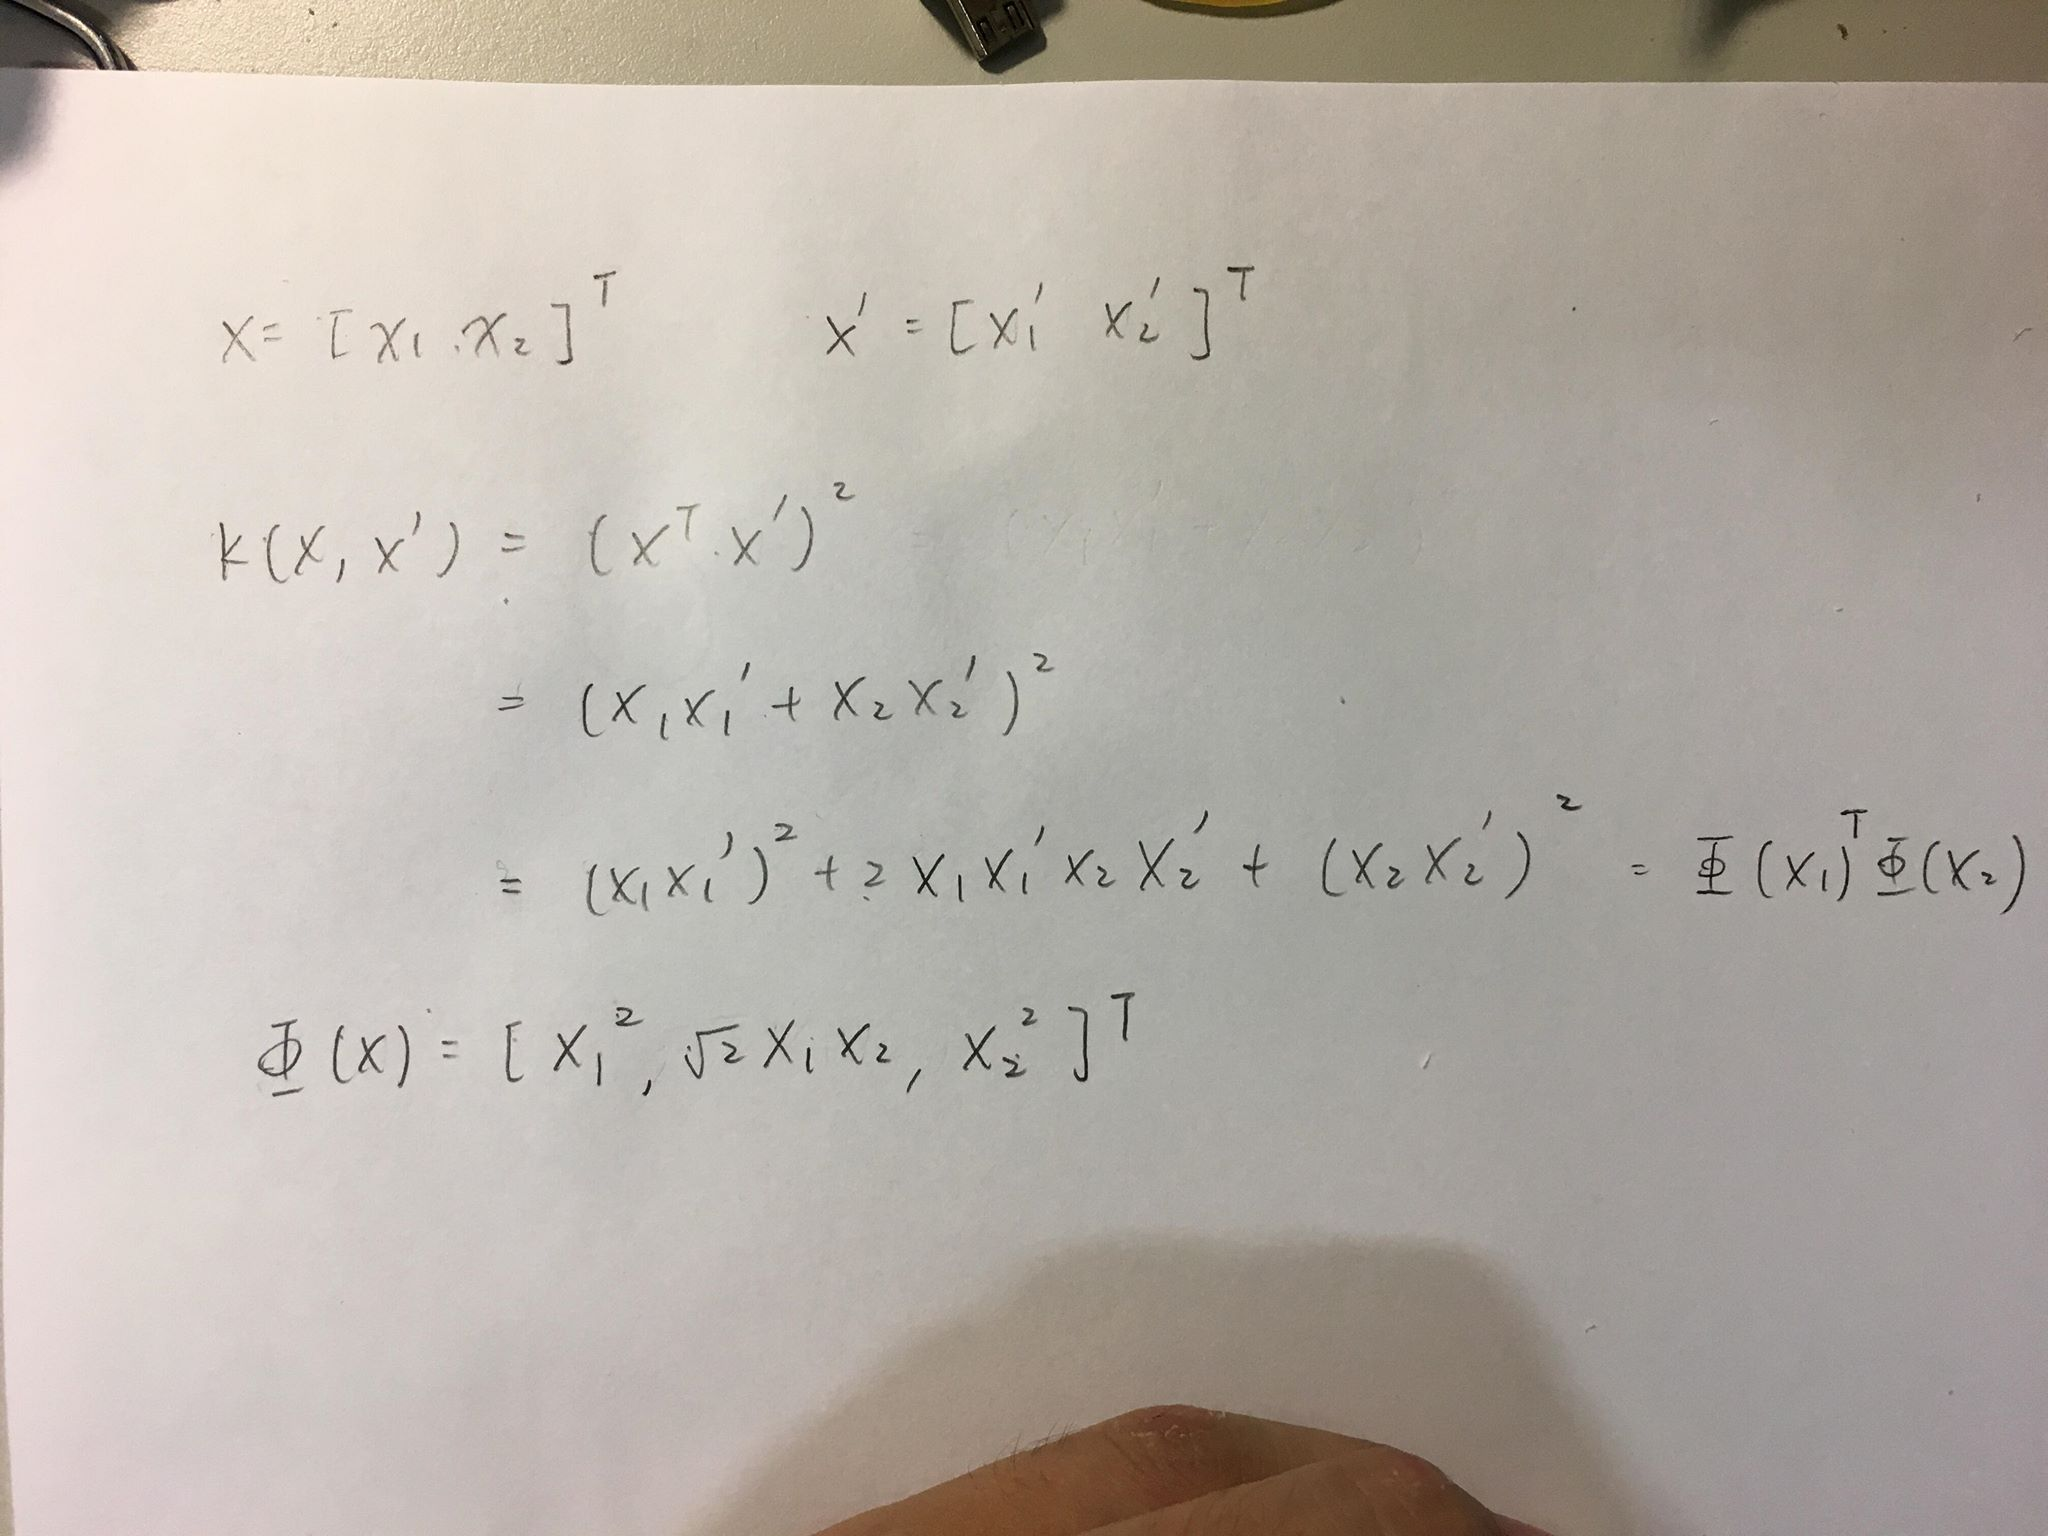 x = [x₁ . x₂]ᵀ x' = [x₁' x₂']ᵀ
k(x, x') = (xᵀ . x')²
= (x₁x₁' + x₂x₂')²
= (x₁x₁')² + 2x₁x₁'x₂x₂' + (x₂x₂')² = Φ(x₁)ᵀΦ(x₂)
Φ(x) = [x₁², √2x₁x₂, x₂²]ᵀ